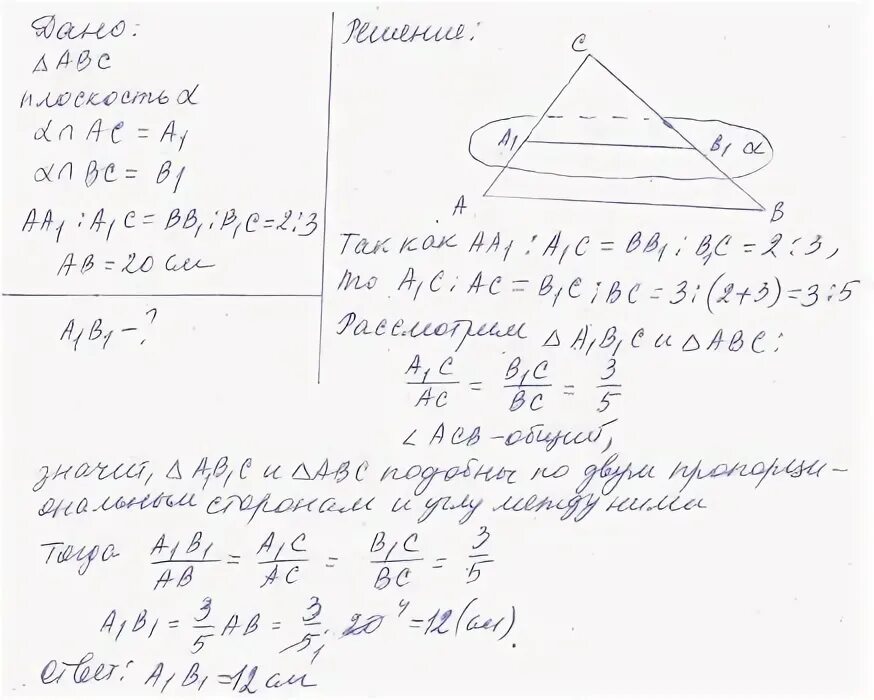 Дано:
△ABC
плоскость α
α∩AC = A₁
α∩BC = B₁
AA₁ : A₁C = BB₁ : B₁C = 2:3
AB = 20 см
A₁B₁ - ?
Решение:
C
A₁
B₁
α
A
B
Так как AA₁ : A₁C = BB₁ : B₁C = 2:3,
то A₁C : AC = B₁C : BC = 3:(2+3) = 3:5
Рассмотрим △A₁B₁C и △ABC:
A₁C/AC = B₁C/BC = 3/5
∠ACB - общий,
значит, △A₁B₁C и △ABC подобны по двум пропорци-
ональным сторонам и углу между ними
Тогда A₁B₁/AB = A₁C/AC = B₁C/BC = 3/5
A₁B₁ = 3/5 AB = 3/5₁ · 20⁴ = 12 (см).
Ответ: A₁B₁ = 12 см